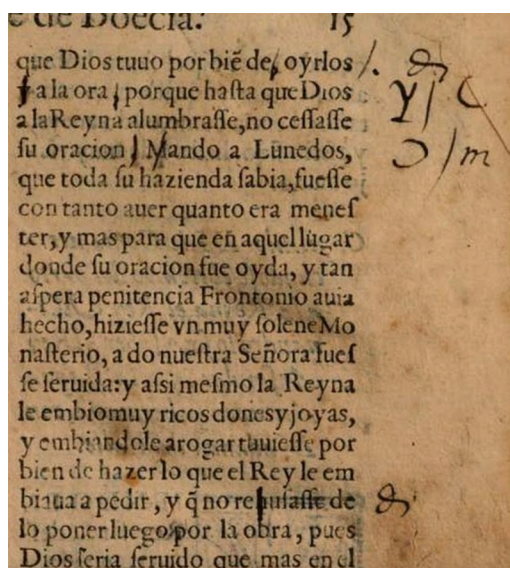 e de Boecia. 15
que Dios tuuo por biẽ de, oyrlos
y a la ora, porque hasta que Dios
a la Reyna alumbrasse, no cessasse
su oracion, Mando a Lunedos,
que toda su hazienda sabia, fuesse
con tanto auer quanto era menes
ter, y mas para que en aquel lugar
donde su oracion fue oyda, y tan
aspera penitencia Frontonio auia
hecho, hiziesse vn muy solene Mo
nasterio, a do nuestra Señora fues
se seruida: y assi mesmo la Reyna
le embio muy ricos dones y joyas,
y embiandole a rogar tuuiesse por
bien de hazer lo que el Rey le em
biaua a pedir, y q̃ no rehusasse de
lo poner luego por la obra, pues
Dios seria seruido que mas en el